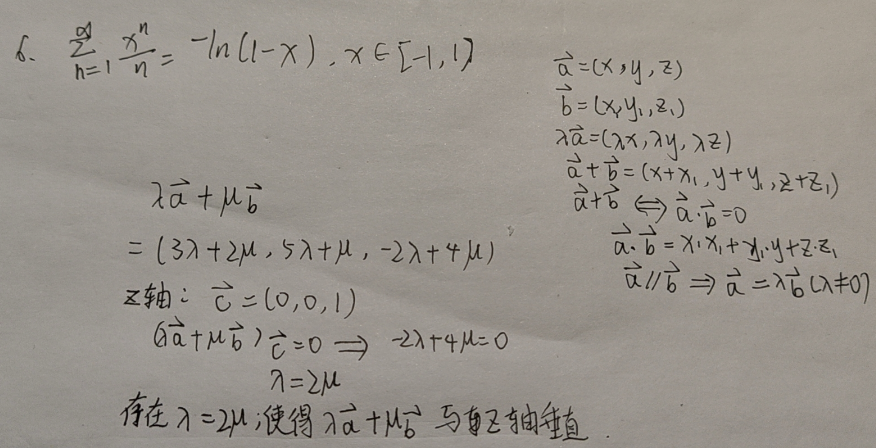 6. ∞∑n=1 xⁿ/n = -ln(1-x), x∈[-1,1)
a⃗=(x,y,z)
b⃗=(x₁,y₁,z₁)
λa⃗=(λx,λy,λz)
a⃗+b⃗=(x+x₁,y+y₁,z+z₁)
a⃗+b⃗ ⇔ a⃗·b⃗=0
a⃗·b⃗=x·x₁+y₁·y+z·z₁
a⃗//b⃗ ⇒ a⃗=λb⃗(λ≠0)
λa⃗+μb⃗
=(3λ+2μ,5λ+μ,-2λ+4μ)
z轴: c⃗=(0,0,1)
(λa⃗+μb⃗)c⃗=0 ⇒ -2λ+4μ=0
λ=2μ
存在λ=2μ,使得λa⃗+μb⃗与z轴垂直.